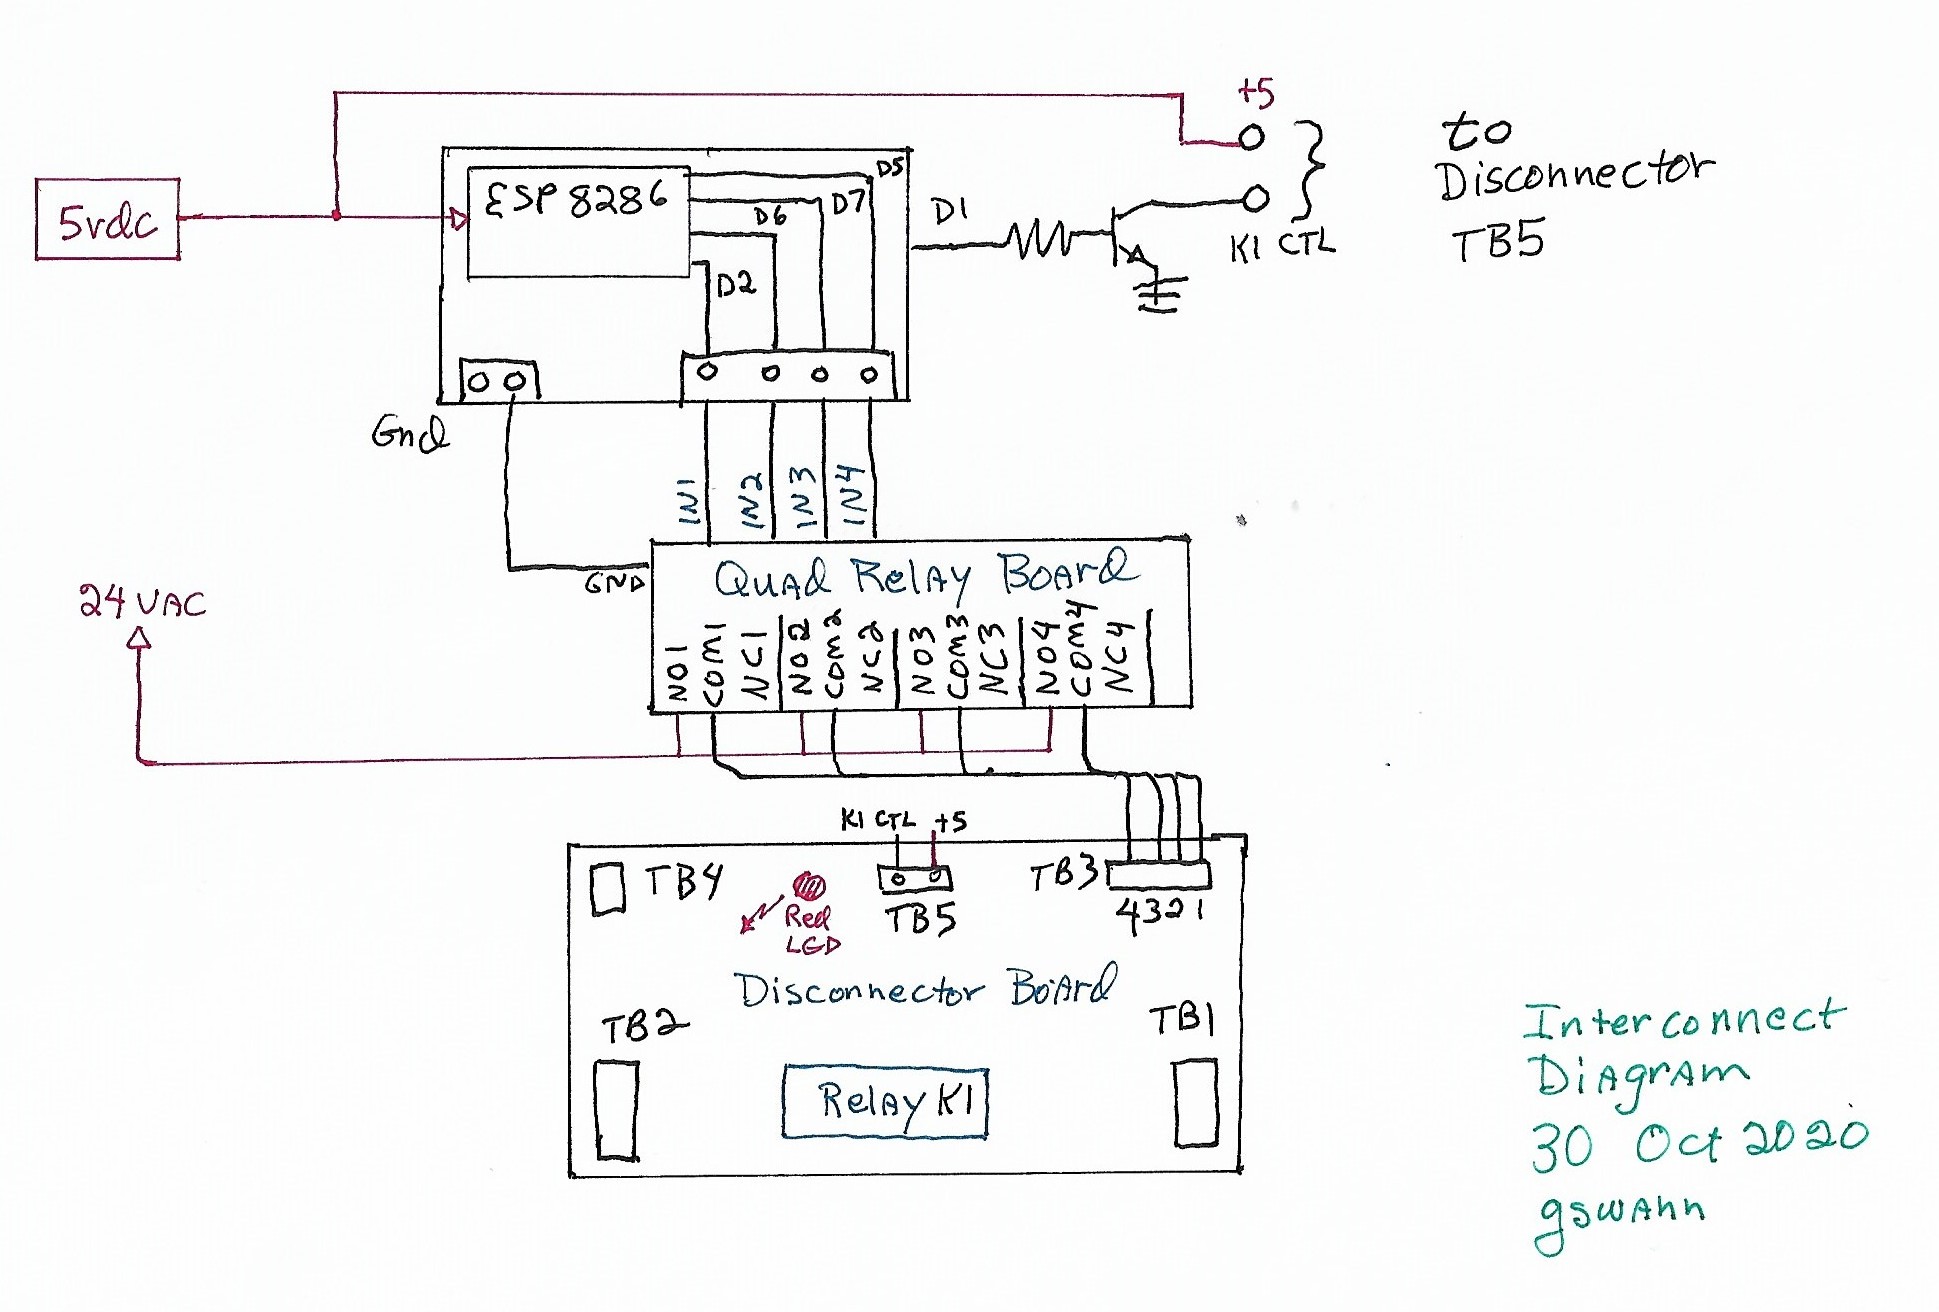 +5
to
Disconnector
TB5
K1 CTL
5vdc
ESP 8286
D5
D7
D6
D2
D1
Gnd
IN1
IN2
IN3
IN4
GND
Quad Relay Board
24 VAC
NO1
COM1
NC1
NO2
COM2
NC2
NO3
COM3
NC3
NO4
COM4
NC4
K1 CTL +5
TB4
Red
LED
TB5
TB3
4321
Disconnector Board
TB2
TB1
Relay K1
Interconnect
Diagram
30 Oct 2020
gswann